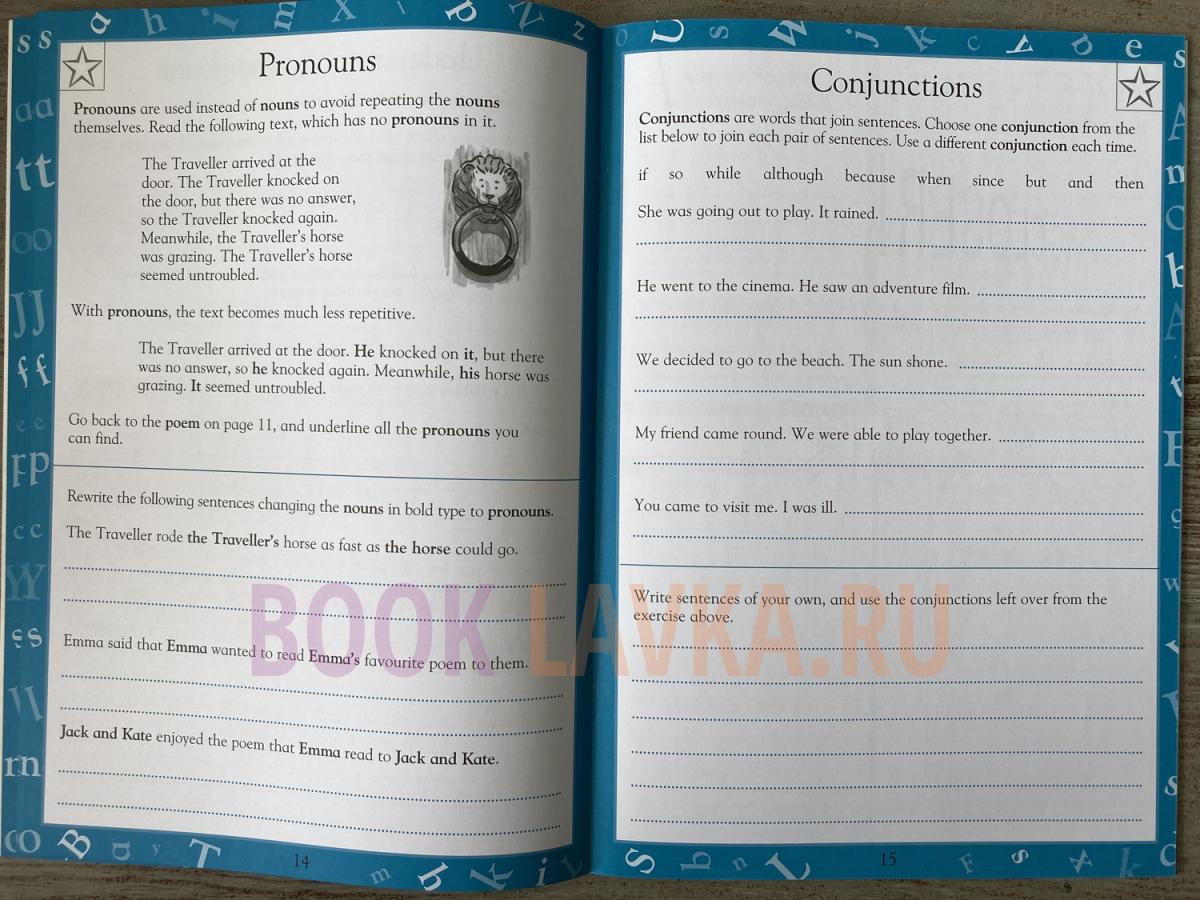 Pronouns
Pronouns are used instead of nouns to avoid repeating the nouns
themselves. Read the following text, which has no pronouns in it.
The Traveller arrived at the
door. The Traveller knocked on
the door, but there was no answer,
so the Traveller knocked again.
Meanwhile, the Traveller's horse
was grazing. The Traveller's horse
seemed untroubled.
With pronouns, the text becomes much less repetitive.
The Traveller arrived at the door. He knocked on it, but there
was no answer, so he knocked again. Meanwhile, his horse was
grazing. It seemed untroubled.
Go back to the poem on page 11, and underline all the pronouns you
can find.
Rewrite the following sentences changing the nouns in bold type to pronouns.
The Traveller rode the Traveller's horse as fast as the horse could go.
Emma said that Emma wanted to read Emma's favourite poem to them.
Jack and Kate enjoyed the poem that Emma read to Jack and Kate.
14
Conjunctions
Conjunctions are words that join sentences. Choose one conjunction from the
list below to join each pair of sentences. Use a different conjunction each time.
if so while although because when since but and then
She was going out to play. It rained.
He went to the cinema. He saw an adventure film.
We decided to go to the beach. The sun shone.
My friend came round. We were able to play together.
You came to visit me. I was ill.
Write sentences of your own, and use the conjunctions left over from the
exercise above.
15
BOOK LAVKA.RU